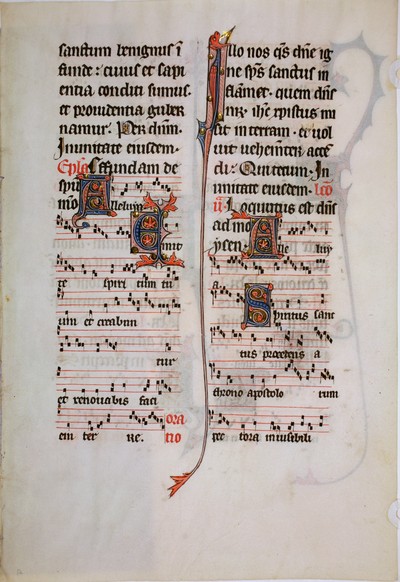 sanctum benignus i
funde: cuius et sapi
entia conditi sumus.
et prouidentia guber
namur. Per dnm.
In unitate eiusdem.
Epla Effundam de
spu
mo Alleluya
Emit
te spiri tum tu
um et creabun
tur
et renouabis faci
em ter re. ora
tio
Illo nos qs dne ig
ne sps sanctus in
flamet. quem dns
nr. ihc xpistus mi
sit in terram. et uol
uit uehementer accen
di. Qui tecum. In
unitate eiusdem. lco
ii. Locutus est dns
ad mo
ysen. Alle luy
a.
Spiritus sanc
tus procedens a
throno apostolo rum
pec tora inuisibili